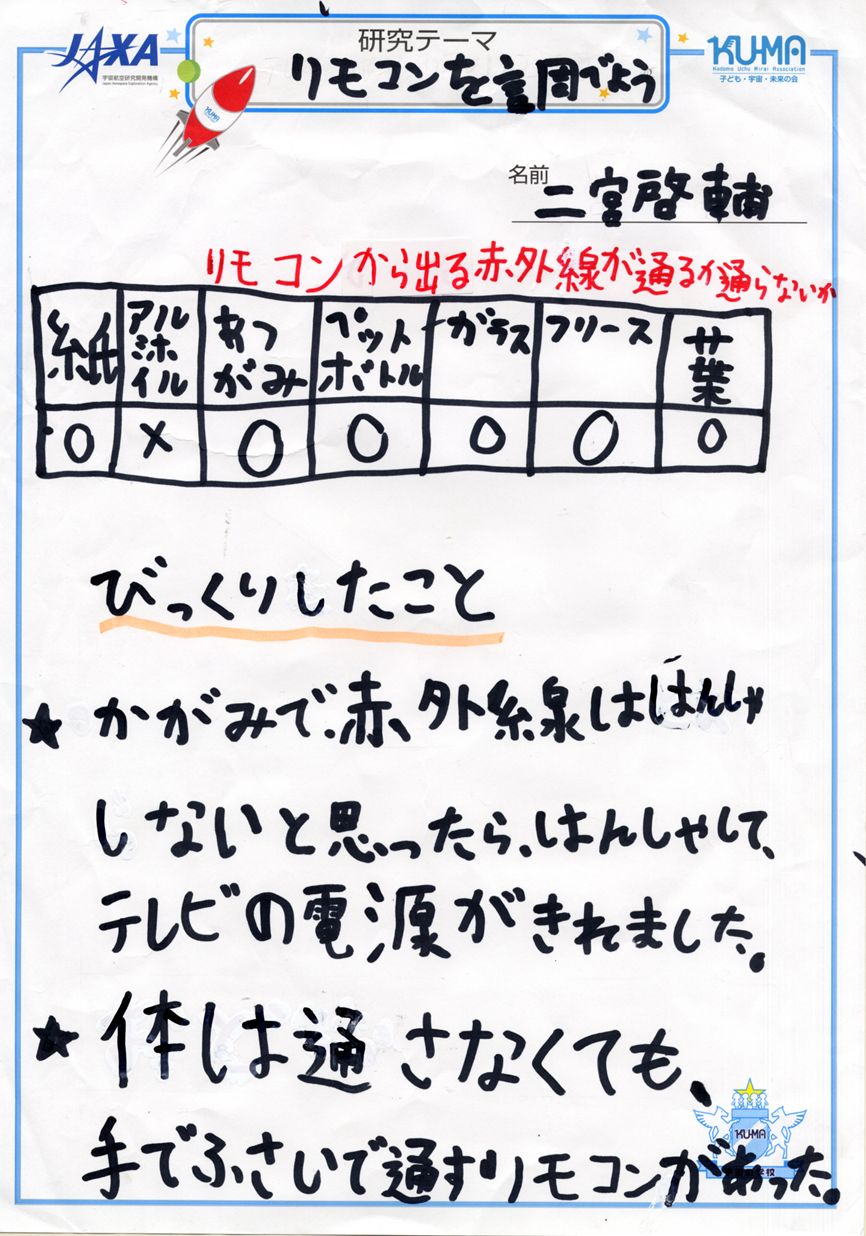 JAXA
宇宙航空研究開発機構
Japan Aerospace Exploration Agency
研究テーマ
リモコンを調べよう
KU-MA
Kodomo Uchu Mirai Association
子ども・宇宙・未来の会
KU-MA
名前 二宮啓輔
リモコンから出る赤外線が通るか通らないか
紙 アルミホイル あつがみ ペットボトル ガラス フリース 葉
○ × ○ ○ ○ ○ ○
びっくりしたこと
★かがみで、赤外線ははんしゃ
しないと思ったら、はんしゃして、
テレビの電源がきれました。
★体は通さなくても、
手でふさいで通すリモコンがあった。
KU-MA